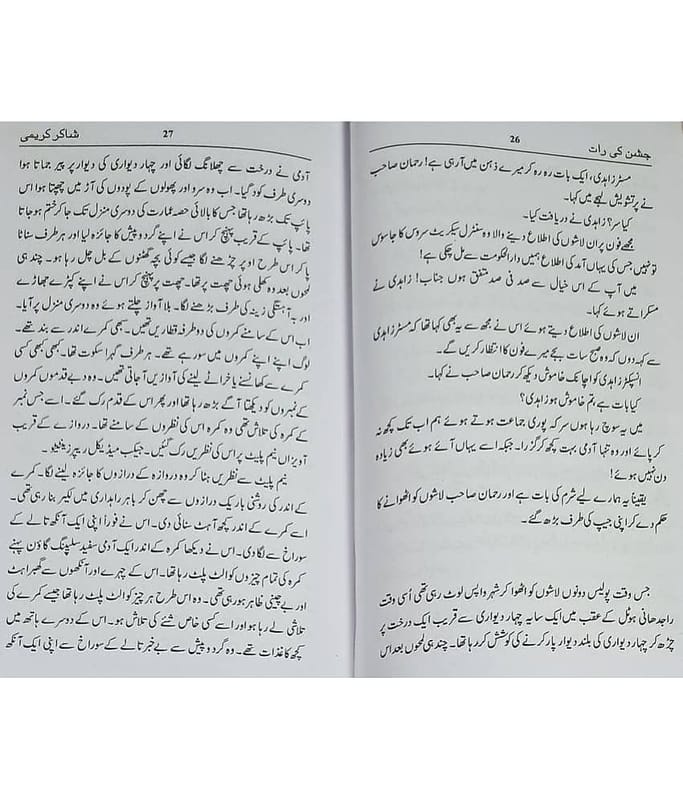 جشن کی رات 26
مسٹر زاہدی، ایک بات رہ رہ کر میرے ذہن میں آ رہی ہے! رحمان صاحب
نے پر تشویش لہجے میں کہا۔
کیا سر؟ زاہدی نے دریافت کیا۔
مجھے فون پر ان لاشوں کی اطلاع دینے والا وہ سنٹرل سیکریٹ سروس کا جاسوس
تو نہیں جس کی یہاں آمد کی اطلاع ہمیں دارالحکومت سے مل چکی ہے!
میں آپ کے اس خیال سے صد فی صد متفق ہوں جناب! زاہدی نے
مسکراتے ہوئے کہا۔
ان لاشوں کی اطلاع دیتے ہوئے اس نے مجھ سے یہ بھی کہا تھا کہ مسٹر زاہدی
سے کہہ دوں کہ وہ صبح سات بجے میرے فون کا انتظار کریں گے۔
انسپکٹر زاہدی کو اچانک خاموش دیکھ کر رحمان صاحب نے کہا۔
کیا بات ہے، تم خاموش ہو زاہدی؟
میں یہ سوچ رہا ہوں سر کہ پوری جماعت ہوتے ہوئے ہم اب تک کچھ نہ
کر پائے اور وہ تنہا آدمی بہت کچھ کر گزرا۔ جبکہ اسے یہاں آئے ہوئے بھی زیادہ
دن نہیں ہوئے!
یقیناً یہ ہمارے لیے شرم کی بات ہے اور رحمان صاحب لاشوں کو اٹھوانے کا
حکم دے کر اپنی جیپ کی طرف بڑھ گئے۔
جس وقت پولیس دونوں لاشوں کو اٹھوا کر شہر واپس لوٹ رہی تھی اُسی وقت
راجدھانی ہوٹل کے عقب میں ایک سایہ چہار دیواری سے قریب ایک درخت پر
چڑھ کر چہار دیواری کی بلند دیوار پار کرنے کی کوشش کر رہا تھا۔ چند ہی لمحوں بعد اس
27 شاکر کریمی
آدمی نے درخت سے چھلانگ لگائی اور چہار دیواری کی دیوار پر پیر جماتا ہوا
دوسری طرف کود گیا۔ اب وہ سرو اور پھولوں کے پودوں کی آڑ میں چھپتا ہوا اس
پائپ تک بڑھ رہا تھا جس کا بالائی حصہ عمارت کی دوسری منزل تک جا کر ختم ہو جاتا
تھا۔ پائپ کے قریب پہنچ کر اس نے اپنے گرد و پیش کا جائزہ لیا اور ہر طرف سناٹا
پا کر اس طرح اوپر چڑھنے لگا جیسے کوئی بچہ گھٹنوں کے بل چل رہا ہو۔ چند ہی
لمحوں بعد وہ کھلی ہوئی چھت پر تھا۔ چھت پر پہنچ کر اس نے اپنے کپڑے جھاڑے
اور بہ آہستگی زینہ کی طرف بڑھنے لگا۔ بلا آواز چلتے ہوئے وہ دوسری منزل پر آیا۔
اب اس کے سامنے کمروں کی دو طرفہ قطاریں تھیں۔ سبھی کمرے اندر سے بند تھے۔
لوگ اپنے اپنے کمروں میں سو رہے تھے۔ ہر طرف گہرا سکوت تھا۔ کبھی کبھی کسی
کمرے سے کھانسنے یا خراٹے لینے کی آوازیں آ جاتی تھیں۔ وہ دبے قدموں کمروں
کے نمبروں کو دیکھتا آگے بڑھ رہا تھا اور پھر اس کے قدم رک گئے۔ اسے جس نمبر
کے کمرہ کی تلاش تھی وہ کمرہ اس کی نظروں کے سامنے تھا۔ دروازے کے قریب
آویزاں نیم پلیٹ پر اس کی نظریں رک گئیں۔ جیکب میڈیکل ریپریزنٹیٹو
نیم پلیٹ سے نظریں ہٹا کر وہ دروازہ کے درازوں کا جائزہ لینے لگا۔ کمرے
کے اندر کی روشنی باریک درازوں سے چھن کر باہر راہداری میں لکیر بنا رہی تھی۔
اسے کمرے کے اندر کچھ آہٹ سنائی دی۔ اس نے فوراً اپنی ایک آنکھ تالے کے
سوراخ سے لگا دی۔ اس نے دیکھا کمرہ کے اندر ایک آدمی سفید سلیپنگ گاؤن پہنے
کمرہ کی تمام چیزوں کو الٹ پلٹ رہا تھا۔ اس کے چہرے اور آنکھوں سے گھبراہٹ
اور بے چینی ظاہر ہو رہی تھی۔ وہ اس طرح ہر چیز کو الٹ پلٹ رہا تھا جیسے کمرے کی
تلاشی لے رہا ہو اور اسے کسی خاص شئے کی تلاش ہو۔ اس کے دوسرے ہاتھ میں
کچھ کاغذات تھے۔ وہ گرد و پیش سے بے خبر تالے کے سوراخ سے اپنی ایک آنکھ